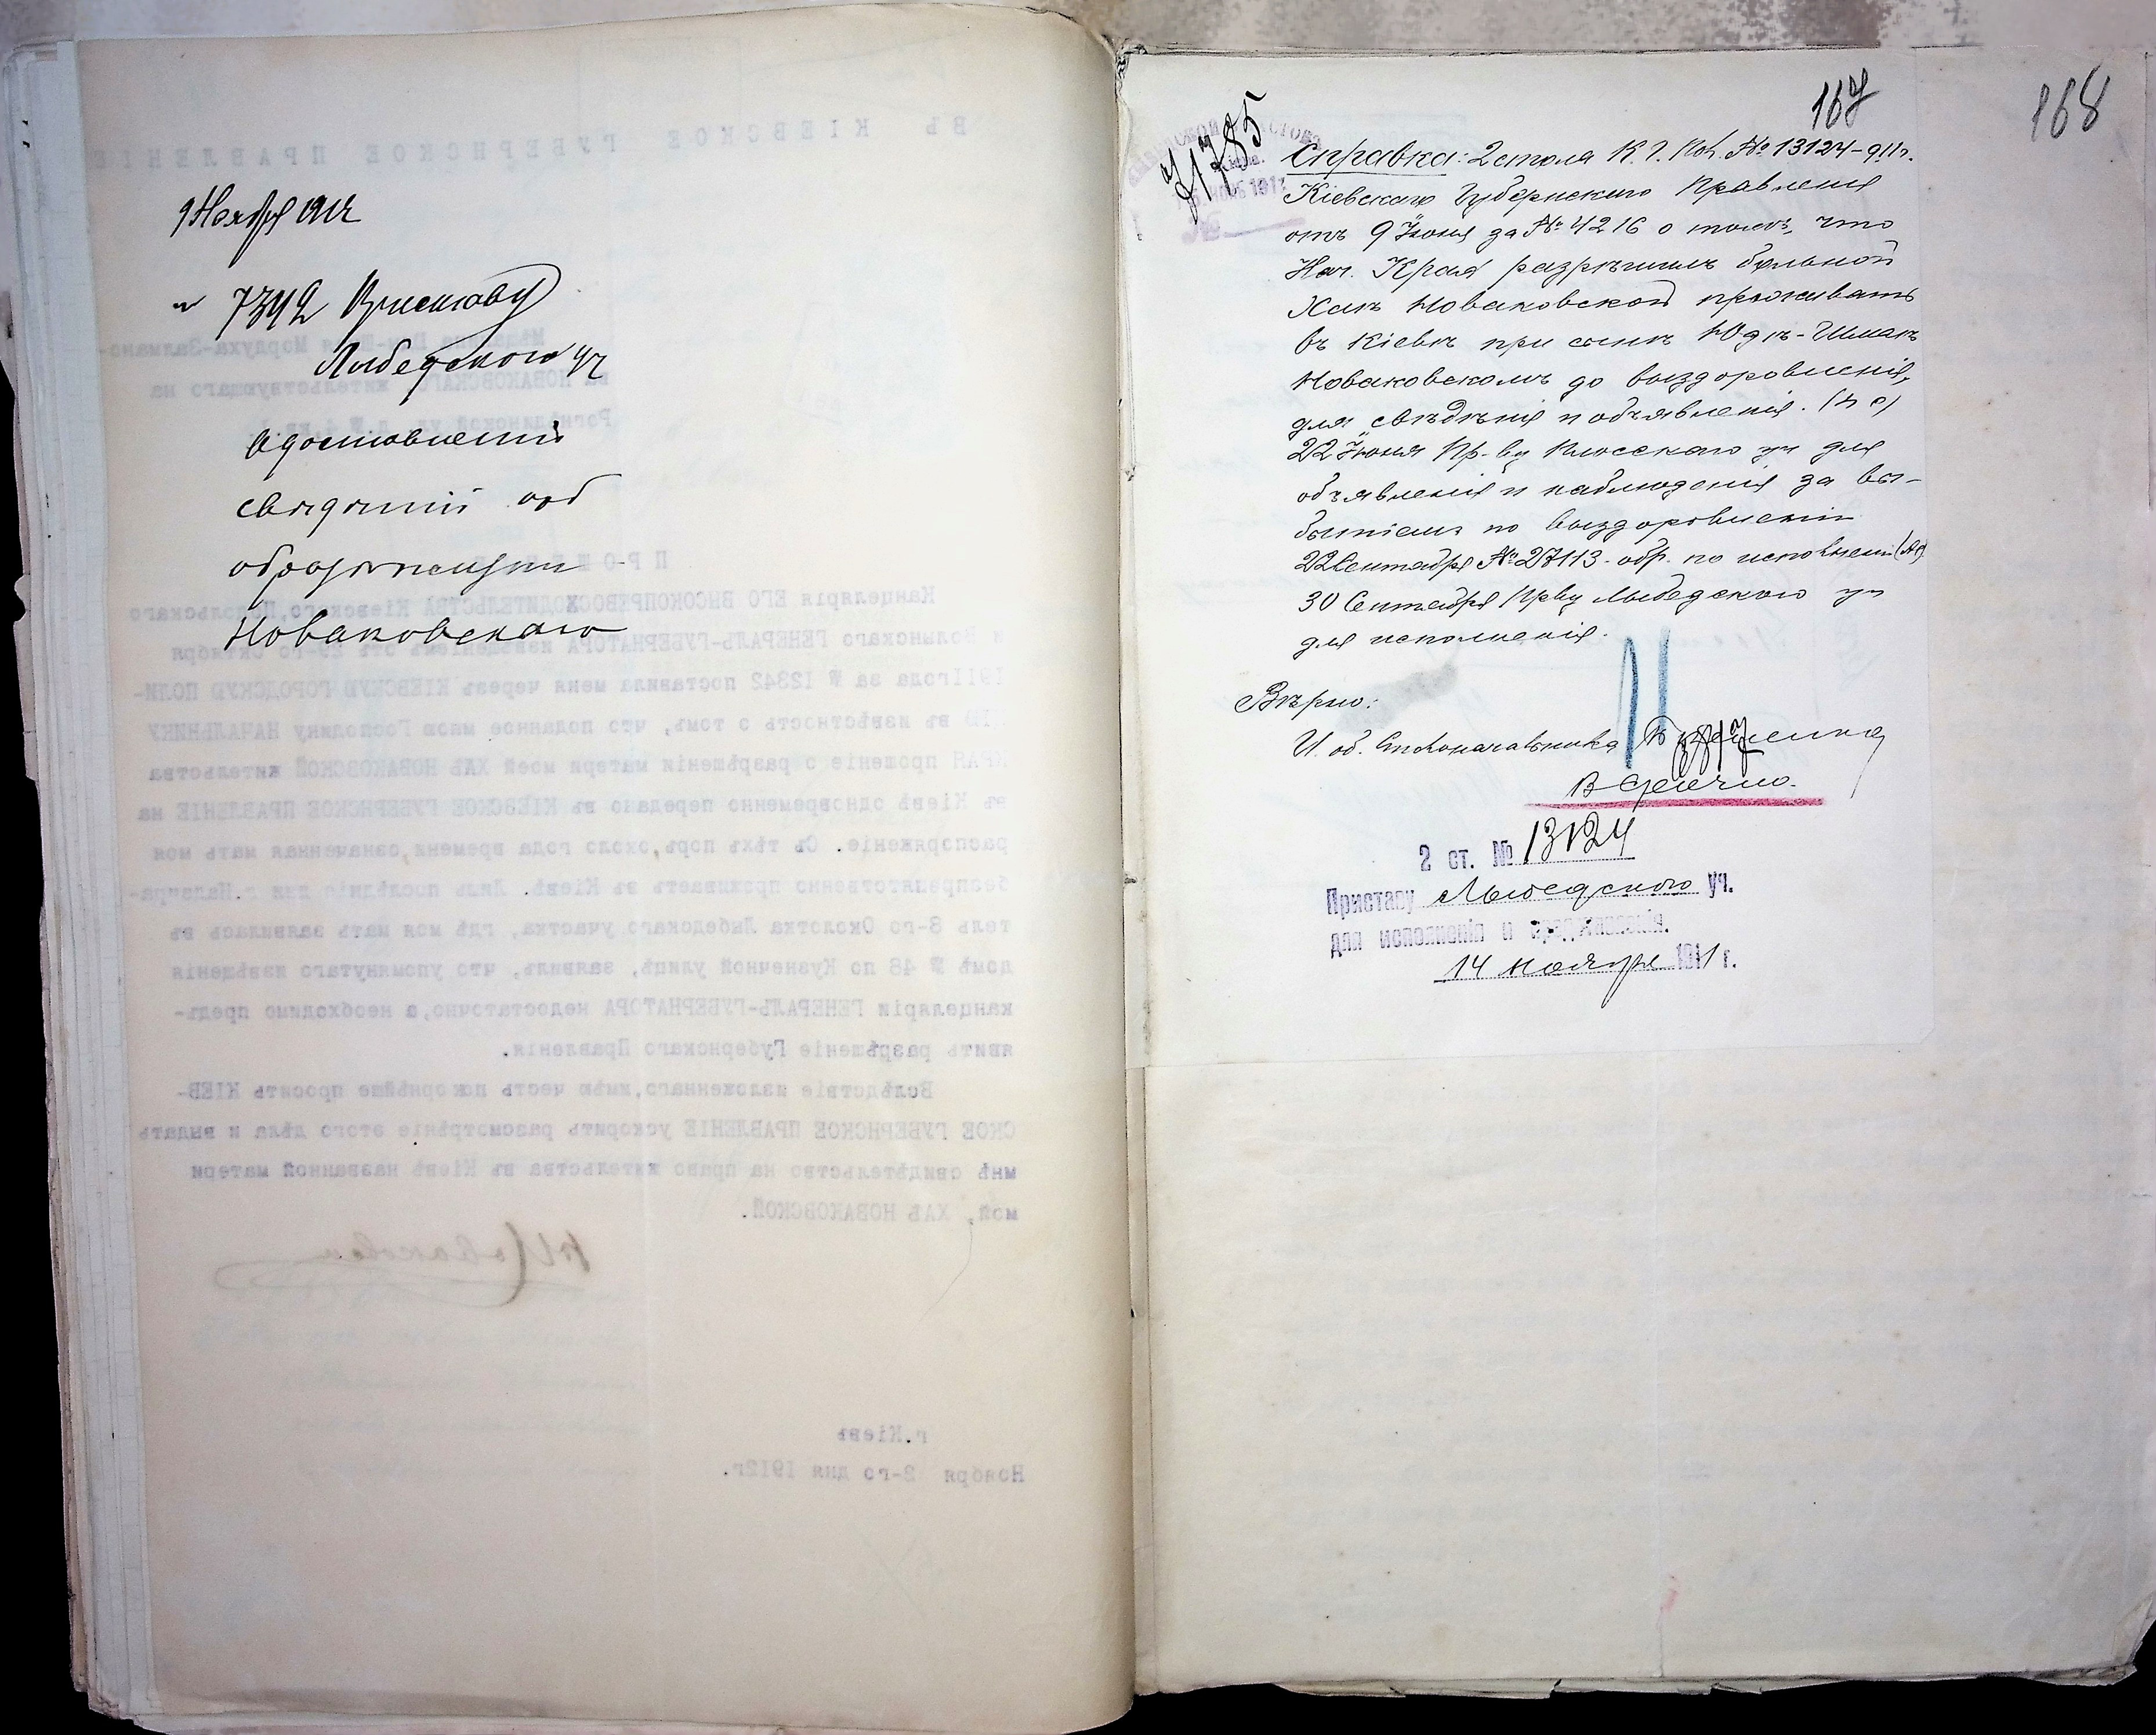 9 Ноября 1912
№ 7392 Приставу
Лыбедского уч
о доставленіи
сведѣній об
Новаковскаго
ВЪ КІЕВСКОЕ ГУБЕРНСКОЕ ПРАВЛЕНІЕ
Мордуха-Залмано-
НОВАКОВСКАГО, жительствующаго на
Рогнѣдинской ул.
ПРОШЕНІЕ
Канцелярія ЕГО ВЫСОКОПРЕВОСХОДИТЕЛЬСТВА Кіевскаго, Подольскаго
и Волынскаго ГЕНЕРАЛЪ-ГУБЕРНАТОРА извѣщеніемъ отъ 29-го октября
1911 года за № 12342 поставила меня черезъ КІЕВСКУЮ ГОРОДСКУЮ ПОЛИ-
ЦІЮ въ извѣстность о томъ, что поданное мною Господину НАЧАЛЬНИКУ
КРАЯ прошеніе о разрѣшеніи матери моей ХАѢ НОВАКОВСКОЙ жительства
въ Кіевѣ одновременно передано въ КІЕВСКОЕ ГУБЕРНСКОЕ ПРАВЛЕНІЕ на
распоряженіе. Съ тѣхъ поръ, около года времени, означенная мать моя
безпрепятственно проживаетъ въ Кіевѣ. Лишь послѣдніе дни г. Надзира-
тель 8-го Околотка Лыбедскаго участка, гдѣ моя мать заявилась въ
домѣ № 48 по Кузнечной улицѣ, заявилъ, что упомянутаго извѣщенія
канцеляріи ГЕНЕРАЛЪ-ГУБЕРНАТОРА недостаточно, а необходимо предъ-
явить разрѣшеніе Губернскаго Правленія.
Вслѣдствіе изложеннаго, имѣю честь покорнѣйше просить КІЕВ-
СКОЕ ГУБЕРНСКОЕ ПРАВЛЕНІЕ ускорить разсмотрѣніе этого дѣла и выдать
мнѣ свидѣтельство на право жительства въ Кіевѣ названной матери
моей, ХАѢ НОВАКОВСКОЙ.
г. Кіевъ
Ноября 2-го дня 1912г.
167
168
Справка: 2 стола К. Г. Пол. № 13124-911г.
Кіевскаго Губернскаго Правленія
отъ 9 Іюня за № 4216 о томъ, что
Нач. Края разрѣшилъ больной
Хаѣ Новаковской проживать
въ Кіевѣ при сынѣ Юдкѣ-Шмаѣ
Новаковскомъ до выздоровленія,
для свѣдѣнія и объявленія.
22 Іюня Пр-ву Плосскаго уч для
объявленія и наблюденія за вы-
бытіемъ по выздоровленіи
22 Сентября № 27113. обр. по исполненіи
30 Сентября Прву Лыбедского уч
для исполненія.
Вѣрно:
И. об. Столоначальника
В Срочно.
2 ст. № 13124
Приставу Лыбедского уч.
для исполненія и
14 ноября 1911 г.